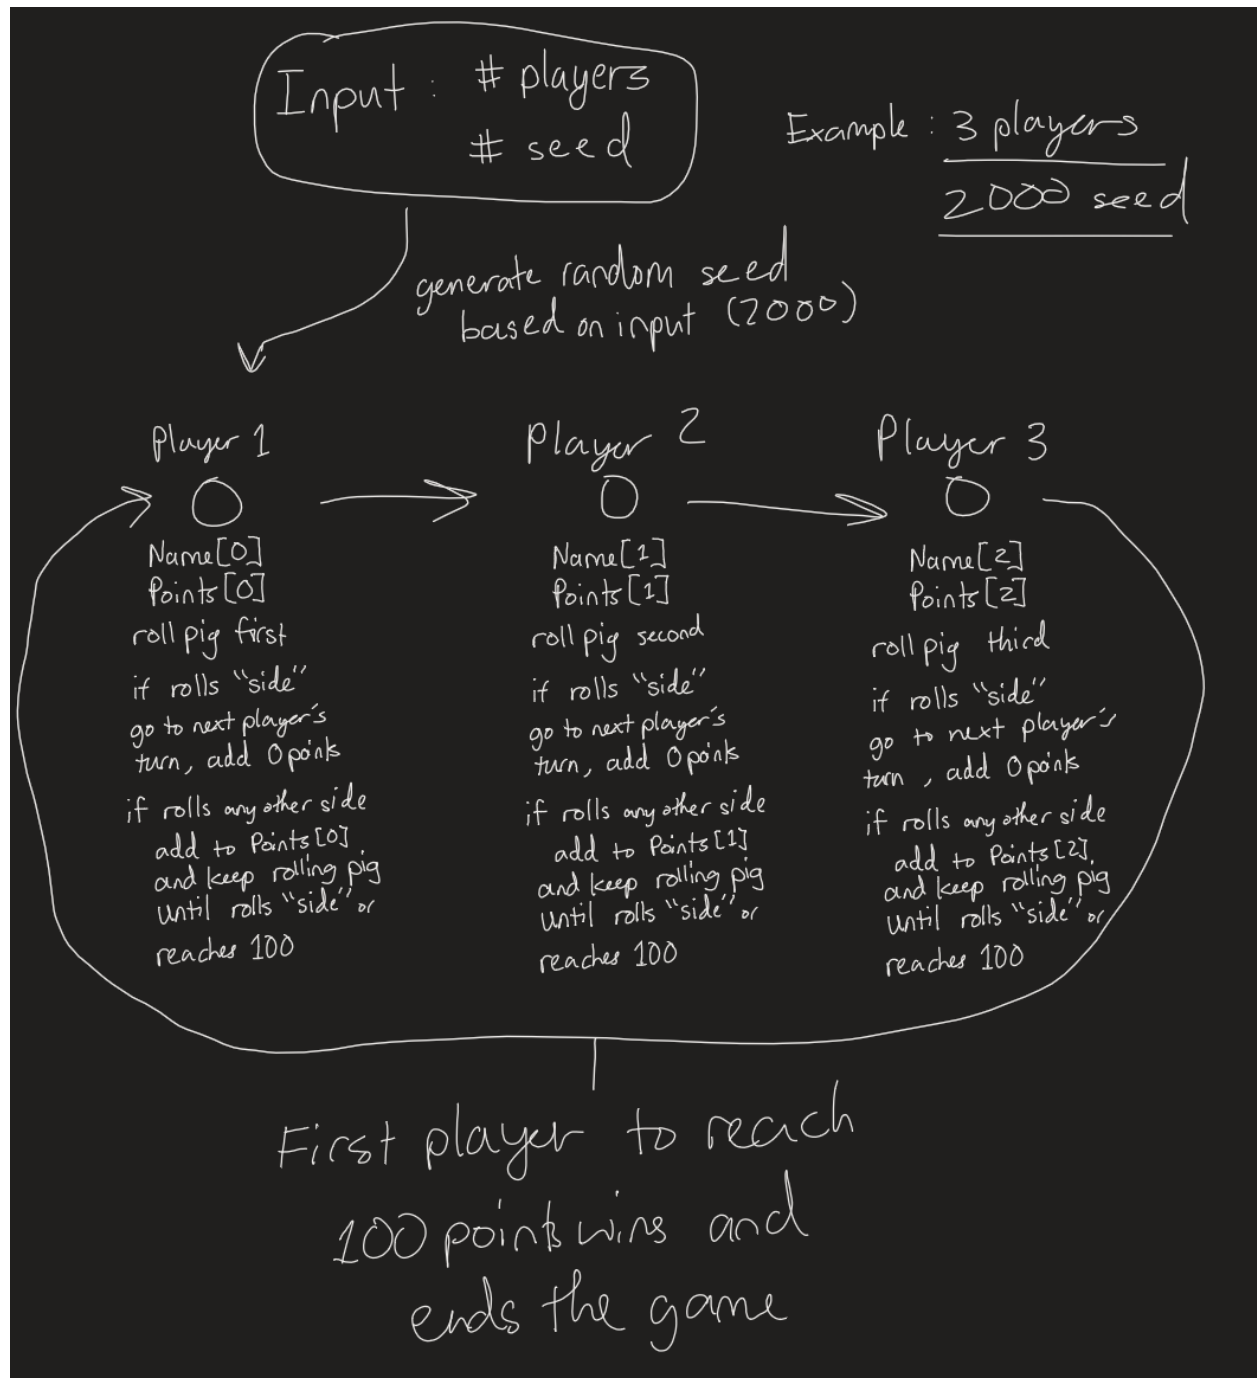 Input : # players
# seed
Example : 3 players
2000 seed
generate random seed
based on input (2000)
Player 1
Name[0]
Points[0]
roll pig first
if rolls "side"
go to next player's
turn, add 0 points
if rolls any other side
add to Points[0]
and keep rolling pig
until rolls "side" or
reaches 100
Player 2
Name[1]
Points[1]
roll pig second
if rolls "side"
go to next player's
turn, add 0 points
if rolls any other side
add to Points[1]
and keep rolling pig
until rolls "side" or
reaches 100
Player 3
Name[2]
Points[2]
roll pig third
if rolls "side"
go to next player's
turn, add 0 points
if rolls any other side
add to Points[2]
and keep rolling pig
until rolls "side" or
reaches 100
First player to reach
100 points wins and
ends the game